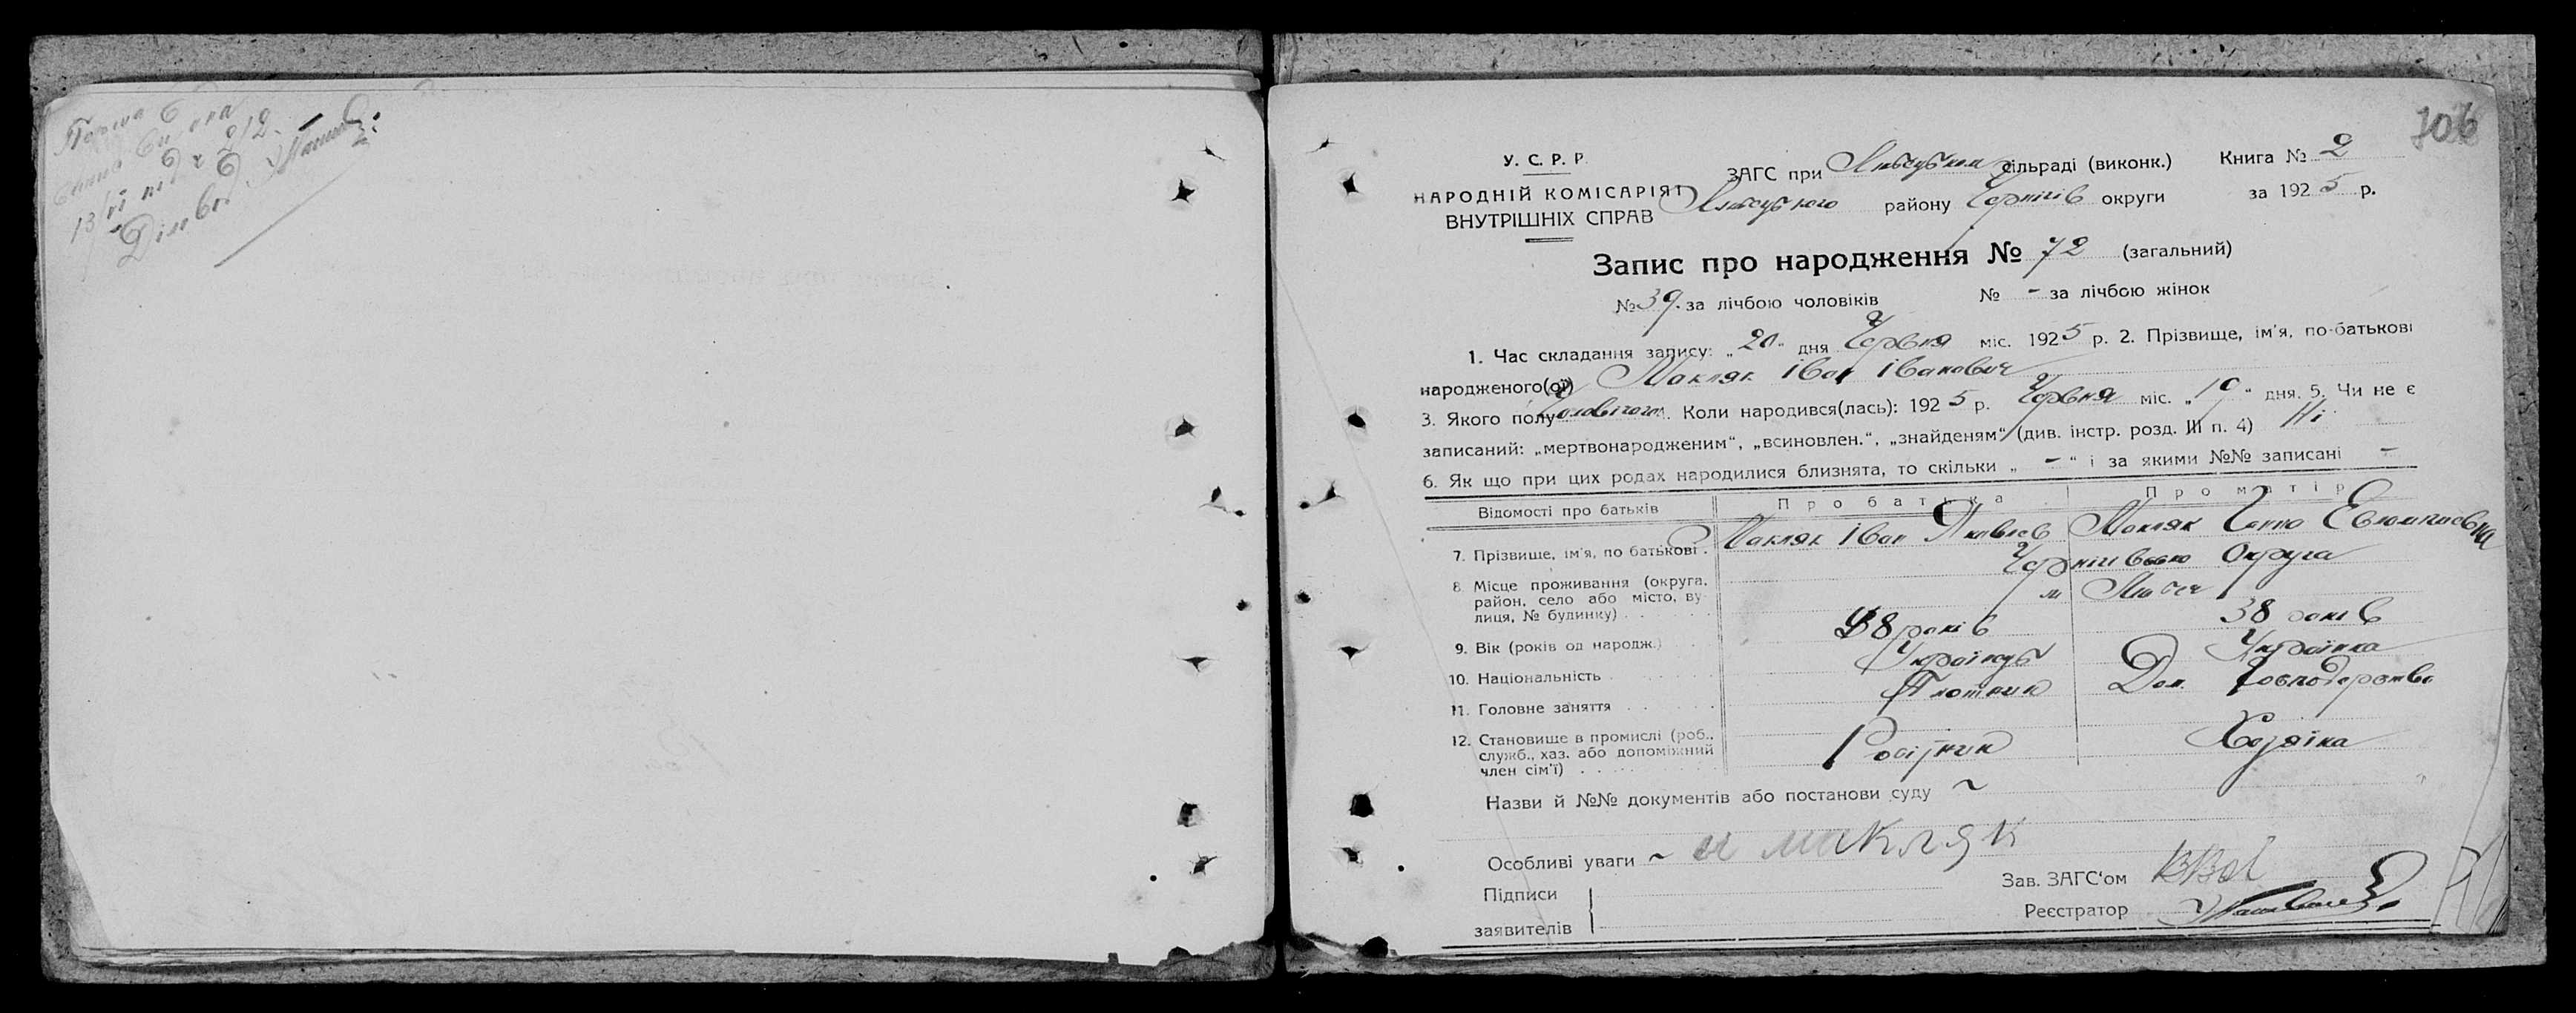 106
У. С. Р. Р.
НАРОДНІЙ КОМІСАРІЯТ
ВНУТРІШНІХ СПРАВ
ЗАГС при Любецькому сільраді (виконк.) Книга № 2
Любецького району Чернігів округи за 1925 р.
Запис про народження № 72 (загальний)
№ 39 за лічбою чоловіків № - за лічбою жінок
1. Час складання запису: „20" дня Червня міс. 1925 р. 2. Прізвище, ім'я, по-батькові
народженого(ої) Макляк Іван Іванович
3. Якого полу Чоловічого. Коли народився(лась): 1925 р. Червня міс. „19" дня. 5. Чи не є
записаний: „мертвонародженим“, „всиновлен.“, „знайденям“ (див. інстр. розд. III п. 4) Ні
6. Як що при цих родах народилися близнята, то скільки „ - “ і за якими №№ записані -
Відомості про батьків Про батька Про матір
7. Прізвище, ім'я, по батькові . Макляк Іван Яковлев Макляк
8. Місце проживання (округа, Чернігівська Округа
район, село або місто, ву-
лиця, № будинку) . . м Любеч
9. Вік (років од народж.) 38 років 38 років
10. Національність . Українець Українка
11. Головне заняття . . Плотник Дом. Господарство
12. Становище в промислі (роб.,
служб., хаз. або допоміжний
член сім'ї) . . Робітник Хозяїка
Назви й №№ документів або постанови суду ~
Особливі уваги ~ и макляк
Підписи
заявителів
Зав. ЗАГС'ом
Реєстратор